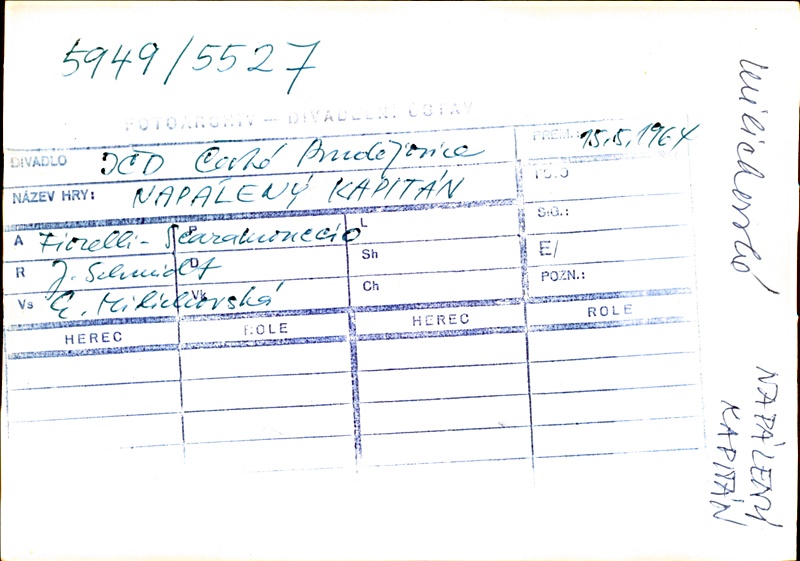 5949/5527
FOTOARCHIV — DIVADELNÍ ÚSTAV
DIVADLO JČD České Budějovice
PREM.: 15.5.1964
NÁZEV HRY: NAPÁLENÝ KAPITÁN
A Fiorelli - Scaramuccio
L
SIG.:
R J. Schmidt
Sh
E/
Vs G. Milichovská
Ch
POZN.:
HEREC ROLE HEREC ROLE
Milichovská
NAPÁLENÝ
KAPITÁN